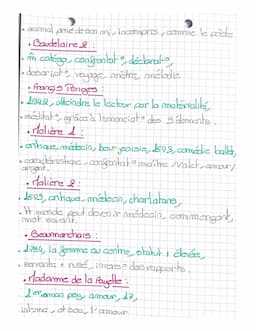 animal, envié de son , incompris, comme le poète
• Baudelaire 2 :
• m̂ catégo, confrontat°, déclarat°,
• descript°, voyage, mètre, mélodie
• Francis Ponges :
• 1942, atteindre le lecteur par la matérialité,
• méditat°, grâce à l'énonciat° des 3 éléments.
• Molière 1 :
• critique, médecin, bourgeoisie, 1673, comédie ballet,
• caractéristique, confrontat° maître/valet, amour/
argent.
• Molière 2 :
• 1673, critique, médecin, charlatans,
• tt monde peut devenir médecin, commençant,
mot savant.
• Beaumarchais :
• 1784, la femme au centre, statut + élevée,
• servante + rusé, inverse des rapports.
• Madamme de la Fayette :
• 1er roman psy, amour, 17,
interne, et , l'amour.